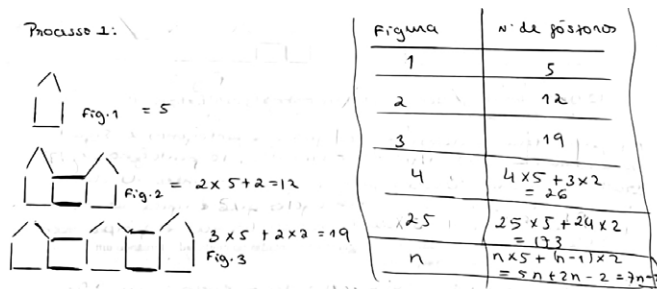 Processo 1:
Fig.1 = 5
Fig.2 = 2 x 5 + 2 = 12
3 x 5 + 2 x 2 = 19
Fig.3
Figura N. de fósforos
1 5
2 12
3 19
4 4 x 5 + 3 x 2
= 26
25 25 x 5 + 24 x 2
= 173
n n x 5 + (n - 1) x 2
= 5n + 2n - 2 = 7n -